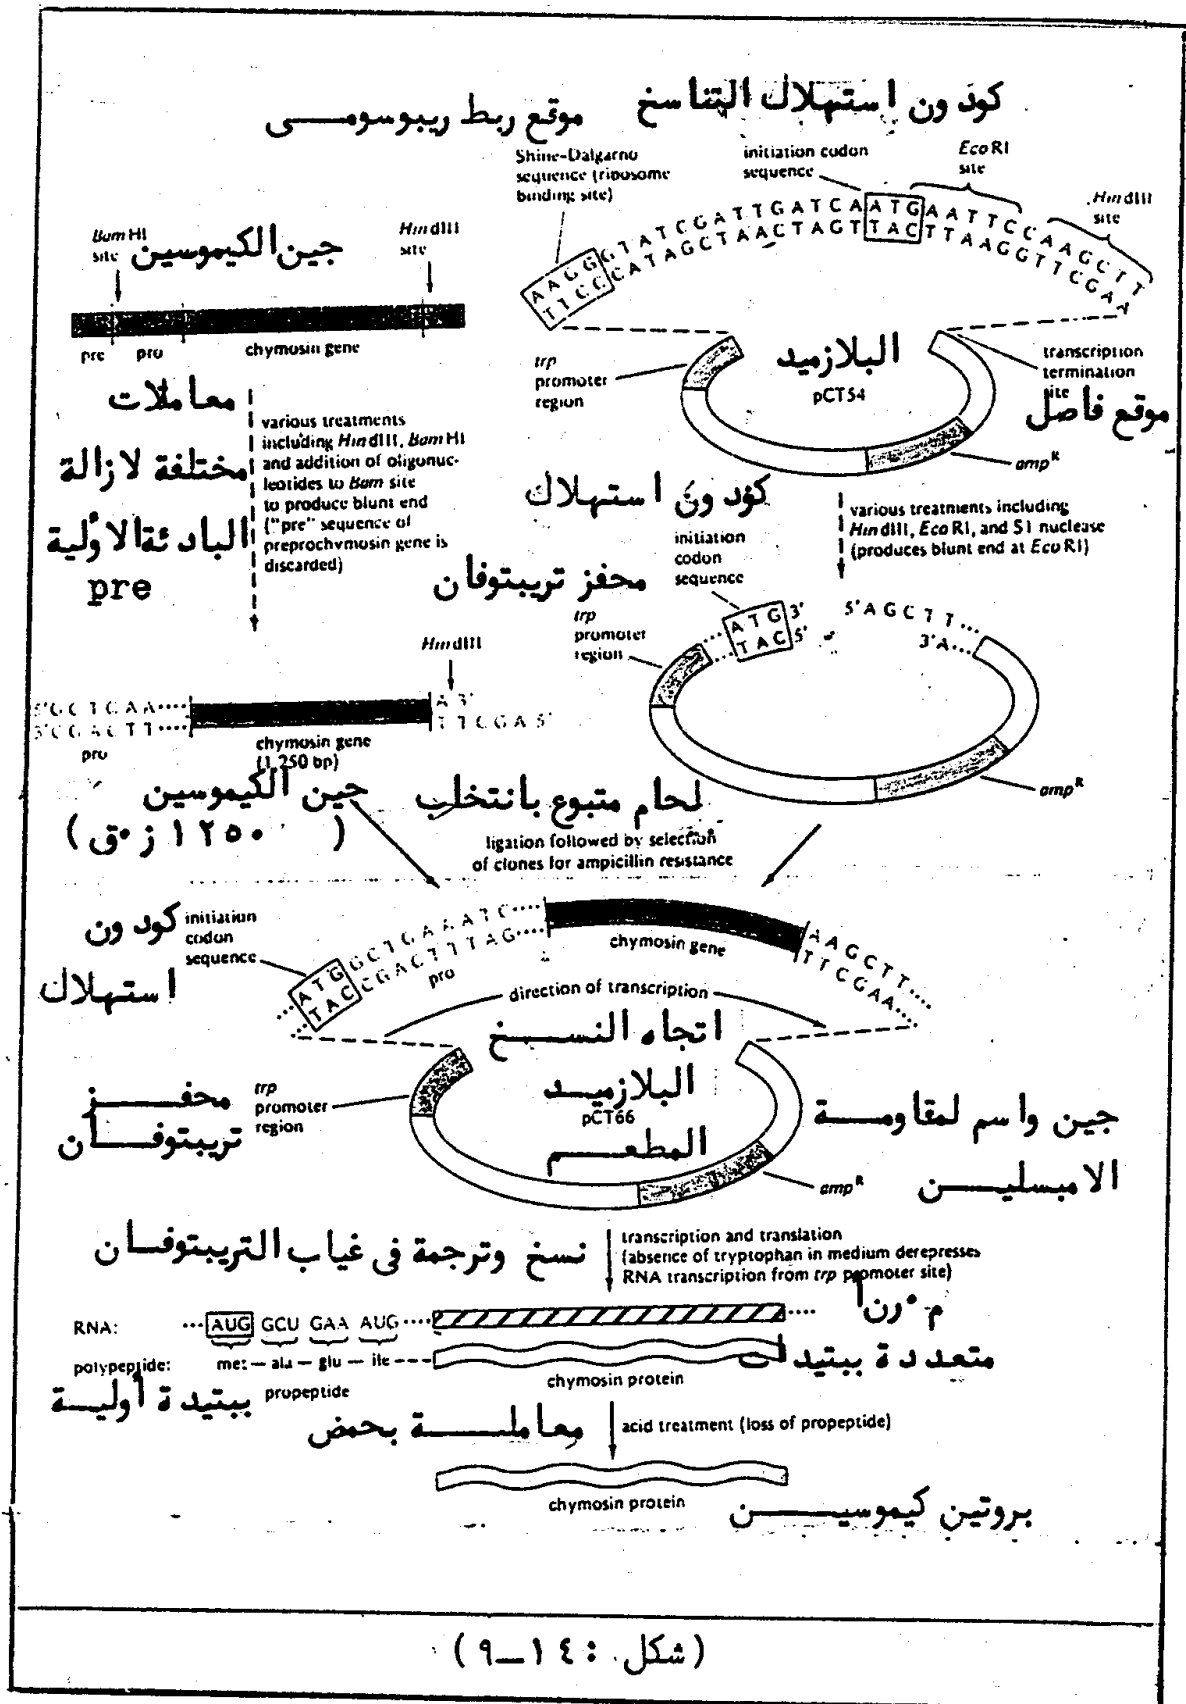 كودون استهلاك التناسخ
موقع ربط ريبوسومى
Shine-Dalgarno
sequence (ribosome
binding site)
initiation codon
sequence
EcoRI
site
HindIII
site
AAGGGTATCGATTGATCAATGAATTCCAAGCTT
TTCCCATAGCTAACTAGTTACTTAAGGTTCGAA
BamHI
site
جين الكيموسين
HindIII
site
pre
pro
chymosin gene
trp
promoter
region
البلازميد
pCT54
transcription
termination
site
موقع فاصل
ampR
معاملات
مختلفة لازالة
البادئة الأولية
pre
various treatments
including HindIII, BamHI
and addition of oligonuc-
leotides to Bam site
to produce blunt end
("pre" sequence of
preprochymosin gene is
discarded)
كودون استهلاك
initiation
codon
sequence
various treatments including
HindIII, EcoRI, and S1 nuclease
(produces blunt end at EcoRI)
محفز تريبتوفان
trp
promoter
region
ATG3'
TAC5'
5'AGCTT...
3'A...
ampR
HindIII
5'GCTGAA....
3'CGACTT....
pro
chymosin gene
(1,250 bp)
A 3'
TTCGA 5'
جين الكيموسين
( ١٢٥٠ ز٠ق )
لحام متبوع بانتخاب
ligation followed by selection
of clones for ampicillin resistance
كودون
استهلاك
initiation
codon
sequence
...ATGGCTGAAATC....
...TACCGACTTTAG....
pro
chymosin gene
AAGCTT....
TTCGAA....
direction of transcription
اتجاه النسخ
محفز
تريبتوفان
trp
promoter
region
البلازميد
pCT66
المطعم
ampR
جين واسم لمقاومة
الامبسلين
نسخ وترجمة فى غياب التريبتوفان
transcription and translation
(absence of tryptophan in medium derepresses
RNA transcription from trp promoter site)
RNA:
...AUG GCU GAA AUG....
....
م٠رنأ
polypeptide:
met — ala — glu — ile ---
chymosin protein
متعددة ببتيدات
ببتيدة أولية
propeptide
معاملة بحمض
acid treatment (loss of propeptide)
chymosin protein
بروتين كيموسين
(شكل : ١٤-٩)